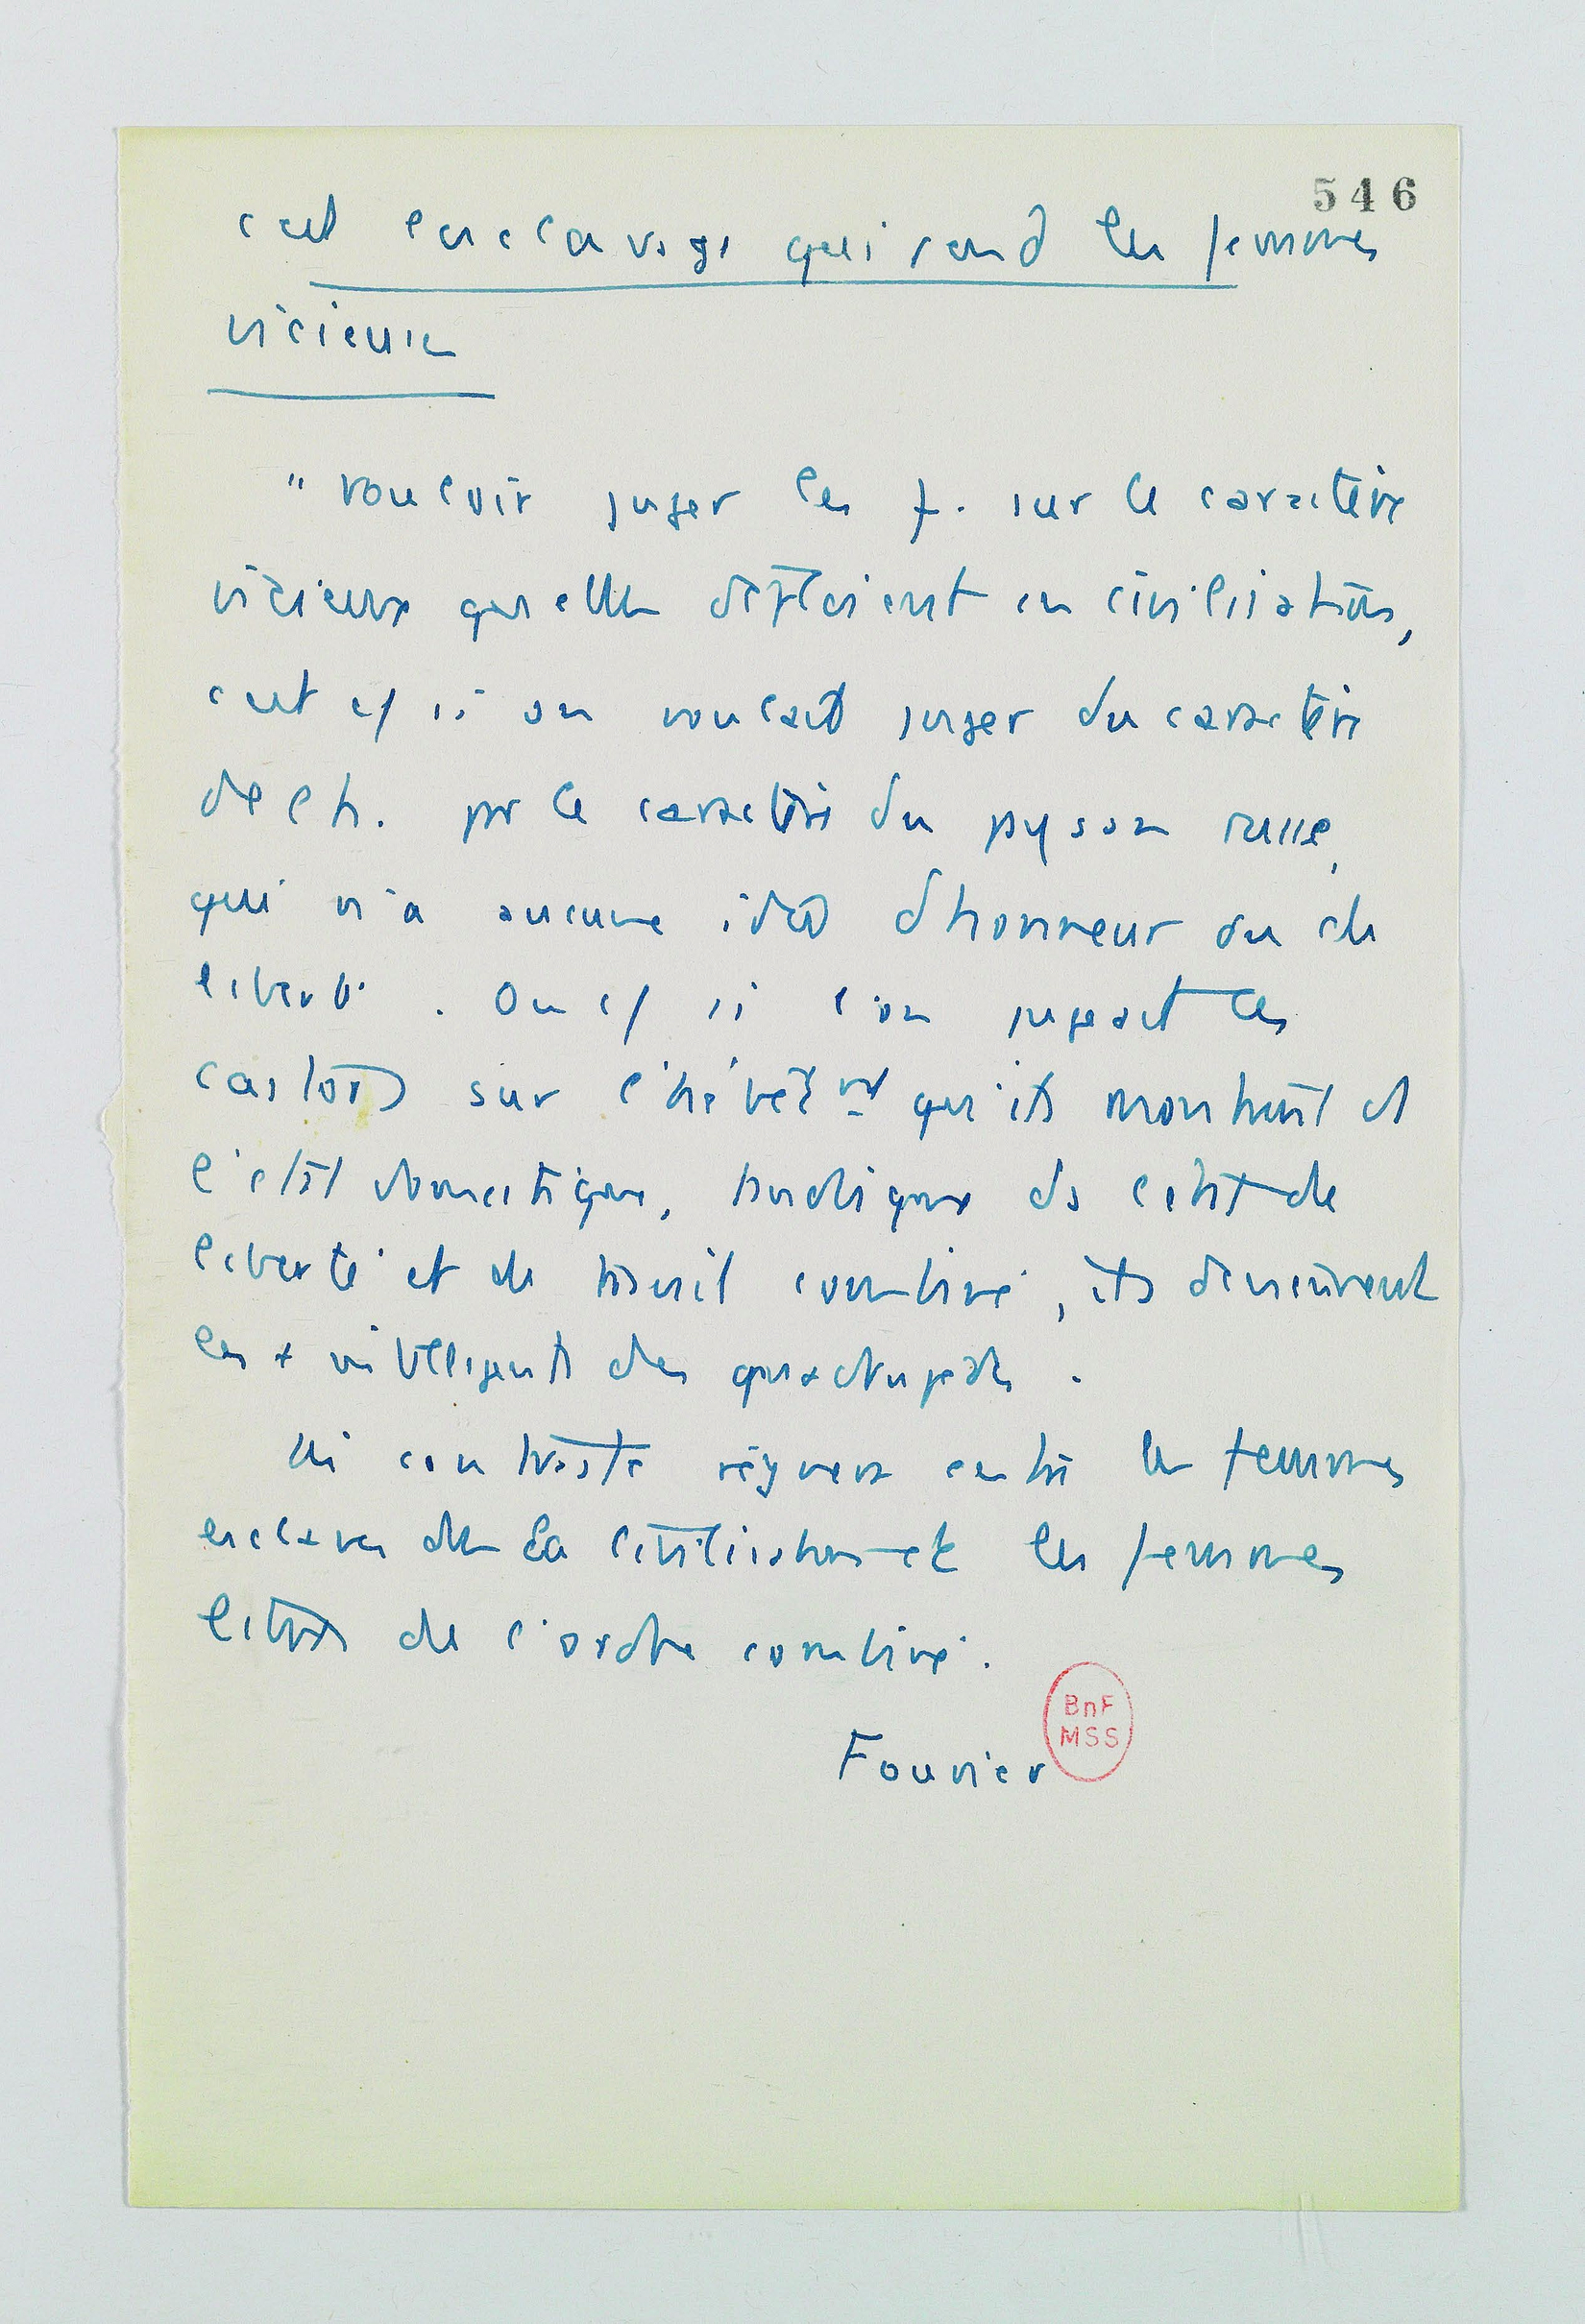 546
c'est l'esclavage qui rend les femmes
vicieuses
" vouloir juger les f. sur le caractère
vicieux qu'elles déploient en civilisation,
c'est c/ si on voulait juger du caractère
de l'h. par le caractère du paysan russe,
qui n'a aucune idée d'honneur ou de
liberté. Ou c/ si l'on jugeait les
castors sur l'hébêtmt qu'ils montrent à
l'état domestique, tandis que ds l'état de
liberté et de travail combiné, ils deviennent
les + intelligents des quadrupèdes.
contraste régnera entre les femmes
esclaves de la civilisation et les femmes
libres de l'ordre combiné.
Fourier
BnF
MSS